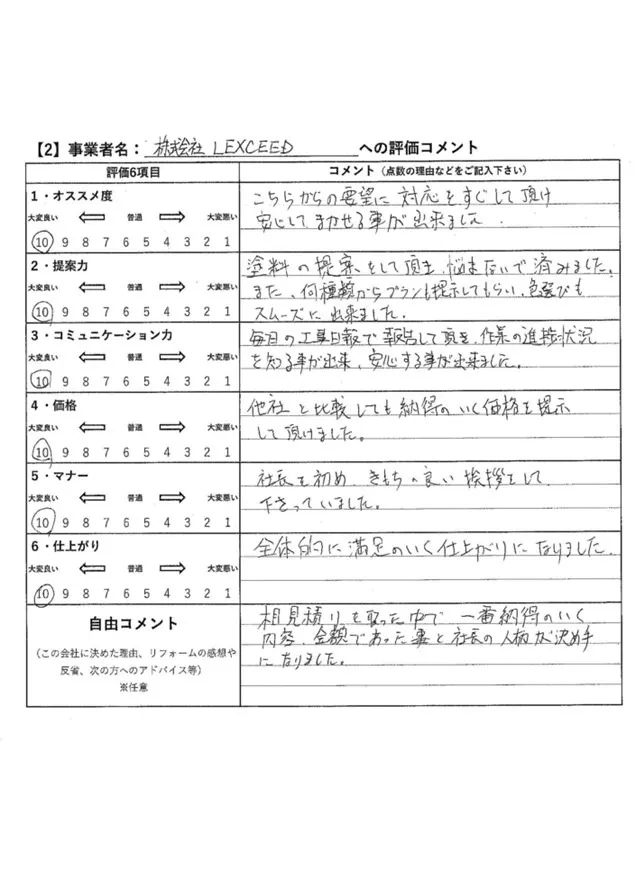 【2】事業者名： 株式会社 LEXCEED への評価コメント
評価6項目
コメント（点数の理由などをご記入下さい）
1・オススメ度
大変良い 普通 大変悪い
10 9 8 7 6 5 4 3 2 1
こちらからの要望に対応をすぐして頂け
安心してまかせる事が出来ました.
2・提案力
大変良い 普通 大変悪い
10 9 8 7 6 5 4 3 2 1
塗料の提案をして頂き、悩まないで済みました。
また、何種類からプランも提示してもらい、色選びも
スムーズに出来ました。
3・コミュニケーション力
大変良い 普通 大変悪い
10 9 8 7 6 5 4 3 2 1
毎月の工事日報で報告して頂き、作業の進捗状況
を知る事が出来、安心する事が出来ました。
4・価格
大変良い 普通 大変悪い
10 9 8 7 6 5 4 3 2 1
他社と比較しても納得のいく価格を提示
して頂けました。
5・マナー
大変良い 普通 大変悪い
10 9 8 7 6 5 4 3 2 1
社長を初め、きもちの良い挨拶をして
下さっていました。
6・仕上がり
大変良い 普通 大変悪い
10 9 8 7 6 5 4 3 2 1
全体的に満足のいく仕上がりになりました.
自由コメント
（この会社に決めた理由、リフォームの感想や
反省、次の方へのアドバイス等）
※任意
相見積りを取った中で一番納得のいく
内容、金額であった事と社長の人柄が決め手
になりました。